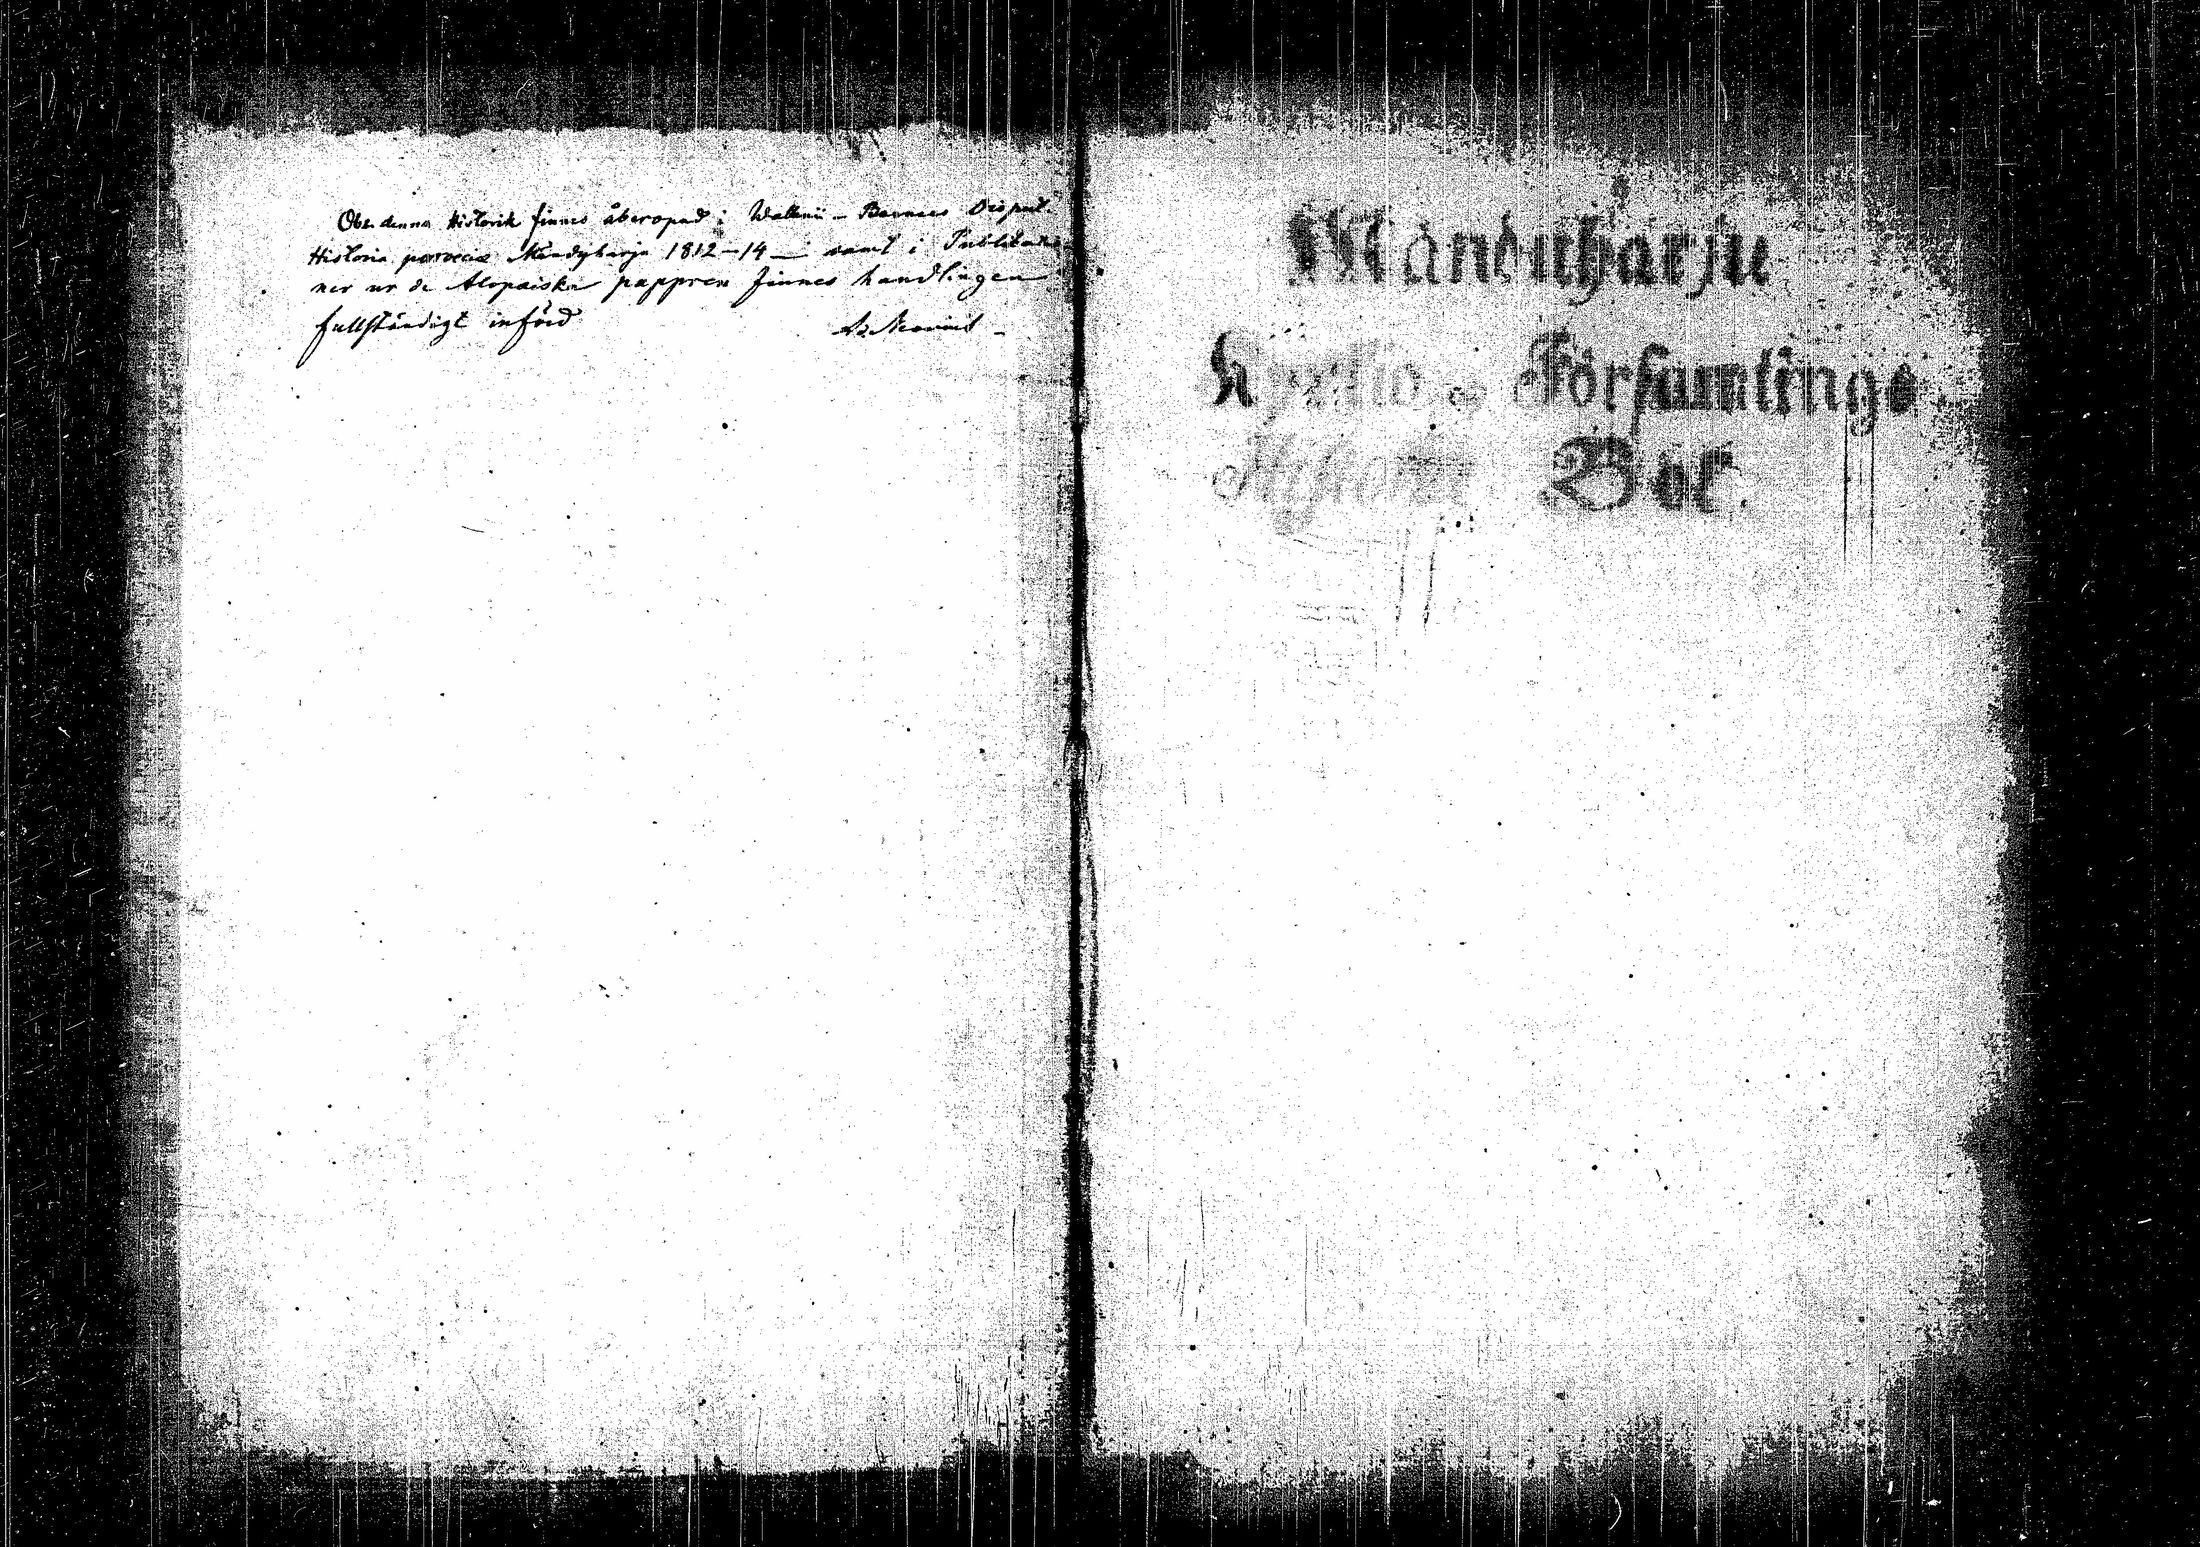 Obs. denna Historik finnes åberopad i Wallenii - Disput.
Historia paroecia Mändyharju 1812-14 — samt i Publikatio-
ner ur de Alopaiska pappren finnes handlingen
fullständigt införd
Mändüharju
Kyrkio Församlings
Historie Bok.